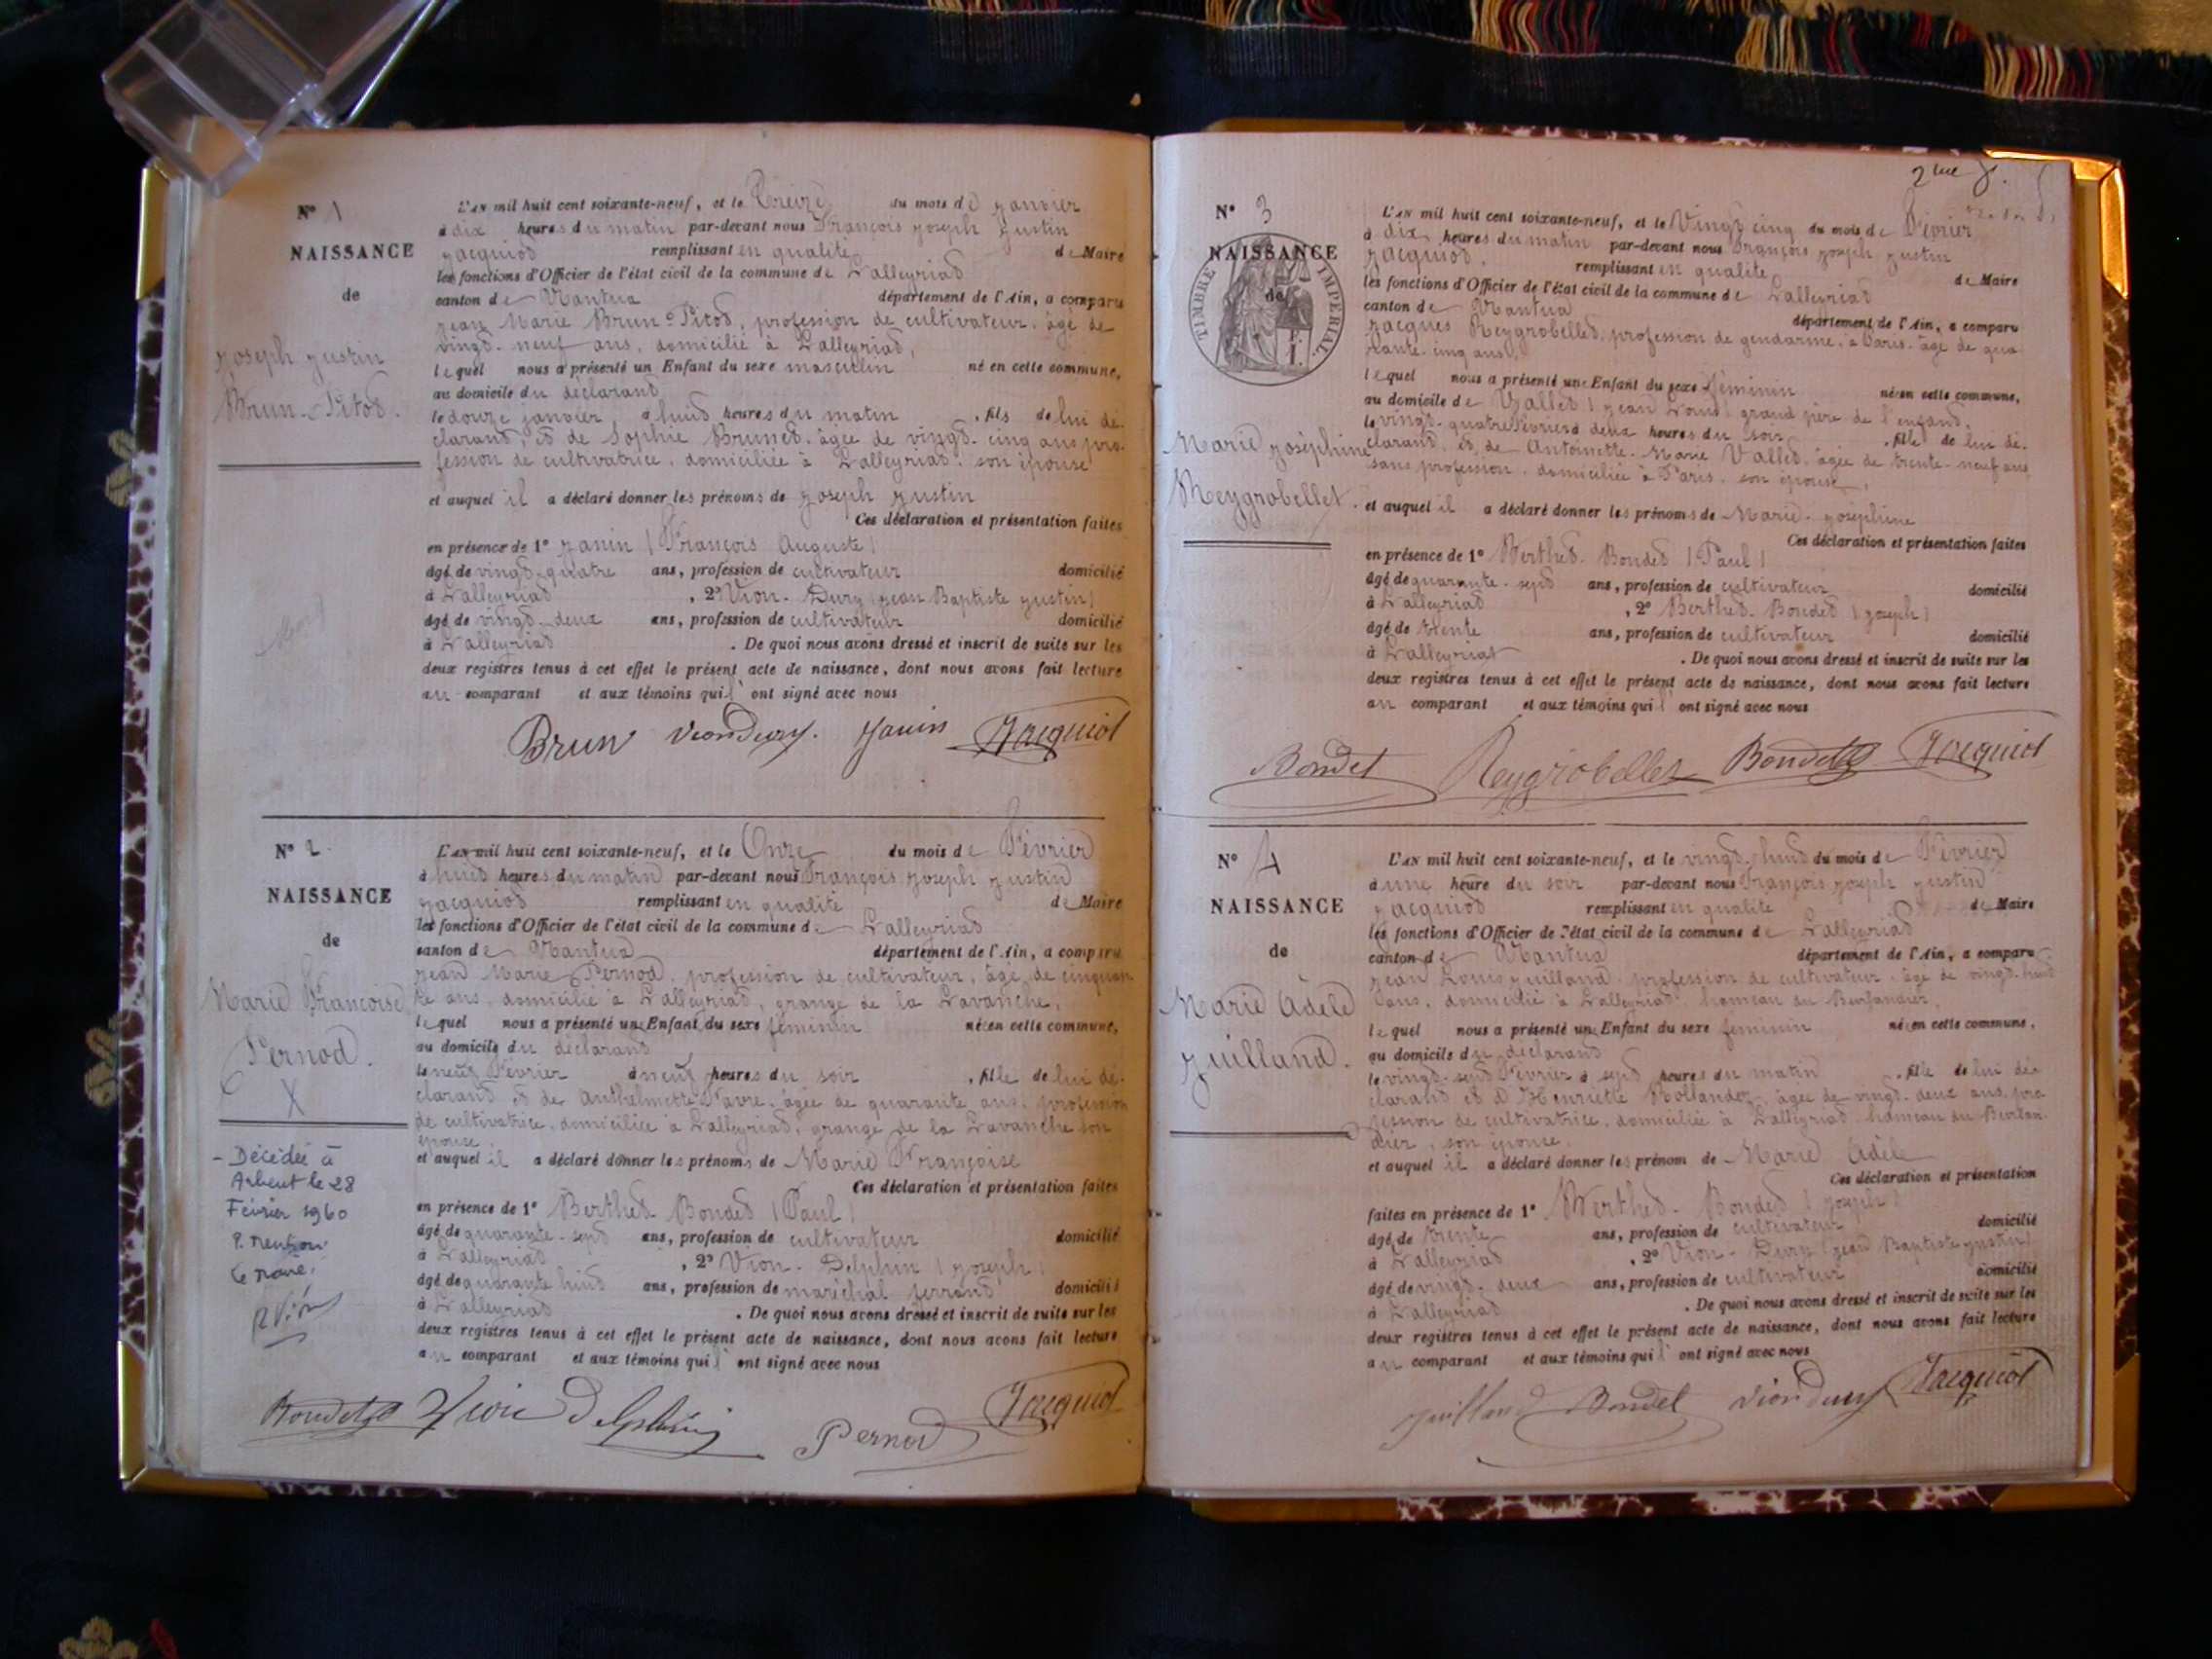 N° 1
NAISSANCE
de
Joseph Justin
Brun-Pitod.
L'AN mil huit cent soixante-neuf, et le Treize du mois de Janvier
à dix heures du matin par-devant nous François Joseph Justin
Jacquiod remplissant en qualité de Maire
les fonctions d'Officier de l'état civil de la commune de Lalleyriad
canton de Nantua département de l'Ain, a comparu
Jean Marie Brun-Pitod, profession de cultivateur, âgé de
vingt-neuf ans, domicilié à Lalleyriad,
lequel nous a présenté un Enfant du sexe masculin né en cette commune,
au domicile du déclarand
le douze janvier à huid heures du matin , fils de lui dé-
clarand, et de Sophie Bruned, âgée de vingd-cinq ans, pro-
fession de cultivatrice, domiciliée à Lalleyriad, son épouse
et auquel il a déclaré donner les prénoms de Joseph Justin
Ces déclaration et présentation faites
en présence de 1° Janin (François Auguste)
âgé de vingd-quatre ans, profession de cultivateur domicilié
à Lalleyriad , 2° Vion-Dury (Jean Baptiste Justin)
âgé de vingd-deux ans, profession de cultivateur domicilié
à Lalleyriad . De quoi nous avons dressé et inscrit de suite sur les
deux registres tenus à cet effet le présent acte de naissance, dont nous avons fait lecture
au comparant et aux témoins qui l' ont signé avec nous
Brun VionDury. Janin Jacquiot
N° 2
NAISSANCE
de
Marie Françoise
Pernod.
X
- Décédée à
Arbent le 28
Février 1960
P. mention
Le maire,
L'AN mil huit cent soixante-neuf, et le Onze du mois de Février
à huid heures du matin par-devant nous François Joseph Justin
Jacquiod remplissant en qualité de Maire
les fonctions d'Officier de l'état civil de la commune de Lalleyriad
canton de Nantua département de l'Ain, a comparu
Jean Marie Pernod, profession de cultivateur, âgé de cinquan
te ans, domicilié à Lalleyriad, grange de la Lavanche,
lequel nous a présenté une Enfant du sexe féminin née en cette commune,
au domicile du déclarand
le neuf Février à neuf heures du soir , fille de lui dé-
clarand et de Anthelmette Favre, âgée de quarante ans, profession
de cultivatrice, domiciliée à Lalleyriad, grange de la Lavanche son
épouse
et auquel il a déclaré donner les prénoms de Marie Françoise
Ces déclaration et présentation faites
en présence de 1° Berthed-Bonded (Paul)
âgé de quarante-sepd ans, profession de cultivateur domicilié
à Lalleyriad , 2° Vion-Delphin (Joseph)
âgé de quarante huid ans, profession de maréchal ferrand domicilié
à Lalleyriad . De quoi nous avons dressé et inscrit de suite sur les
deux registres tenus à cet effet le présent acte de naissance, dont nous avons fait lecture
au comparant et aux témoins qui l' ont signé avec nous
Bondet Vion Delphin Pernod Jacquiot
2me f.
N° 3
NAISSANCE
de
TIMBRE IMPÉRIAL
Marie Joséphine
Reygrobellet.
L'AN mil huit cent soixante-neuf, et le Vingt cinq du mois de Février
à dix heures du matin par-devant nous François Joseph Justin
Jacquiod, remplissant en qualité de Maire
les fonctions d'Officier de l'état civil de la commune de Lalleyriad
canton de Nantua département de l'Ain, a comparu
Jacques Reygrobelled, profession de gendarme, à Paris, âgé de qua-
rante-cinq ans,
lequel nous a présenté une Enfant du sexe féminin née en cette commune,
au domicile de Valled (Jean Louis) grand père de l'enfand,
le vingd-quatre Février à deux heures du soir , fille de lui dé-
clarand, et de Antoinette-Marie Valled, âgée de trente-neuf ans
sans profession, domiciliée à Paris, son épouse,
et auquel il a déclaré donner les prénoms de Marie-Joséphine
Ces déclaration et présentation faites
en présence de 1° Berthed-Bonded (Paul)
âgé de quarante-sepd ans, profession de cultivateur domicilié
à Lalleyriad , 2° Berthed-Bonded (Joseph)
âgé de trente ans, profession de cultivateur domicilié
à Lalleyriat . De quoi nous avons dressé et inscrit de suite sur les
deux registres tenus à cet effet le présent acte de naissance, dont nous avons fait lecture
au comparant et aux témoins qui l' ont signé avec nous
Bondet Reygrobellet Bondet Jacquiot
N° 4
NAISSANCE
de
Marie Adèle
Juilland.
L'AN mil huit cent soixante-neuf, et le vingd-huid du mois de Février
à une heure du soir par-devant nous François Joseph Justin
Jacquiod remplissant en qualité de Maire
les fonctions d'Officier de l'état civil de la commune de Lalleyriad
canton de Nantua département de l'Ain, a comparu
Jean Louis Juilland, profession de cultivateur, âgé de vingd-huid
ans, domicilié à Lalleyriad, hameau du
lequel nous a présenté une Enfant du sexe féminin née en cette commune,
au domicile du déclarand
le vingd-sepd Février à sepd heures du matin , fille de lui dé-
clarand et d'Henriette Hollander, âgée de vingd-deux ans, pro-
fession de cultivatrice, domiciliée à Lalleyriad hameau du
son épouse,
et auquel il a déclaré donner les prénom de Marie Adèle
Ces déclaration et présentation
faites en présence de 1° Berthed-Bonded (Joseph)
âgé de trente ans, profession de cultivateur domicilié
à Lalleyriad , 2° Vion-Dury (Jean Baptiste Justin)
âgé de vingd-deux ans, profession de cultivateur domicilié
à Lalleyriad . De quoi nous avons dressé et inscrit de suite sur les
deux registres tenus à cet effet le présent acte de naissance, dont nous avons fait lecture
au comparant et aux témoins qui l' ont signé avec nous
Juilland Bondet VionDury Jacquiot